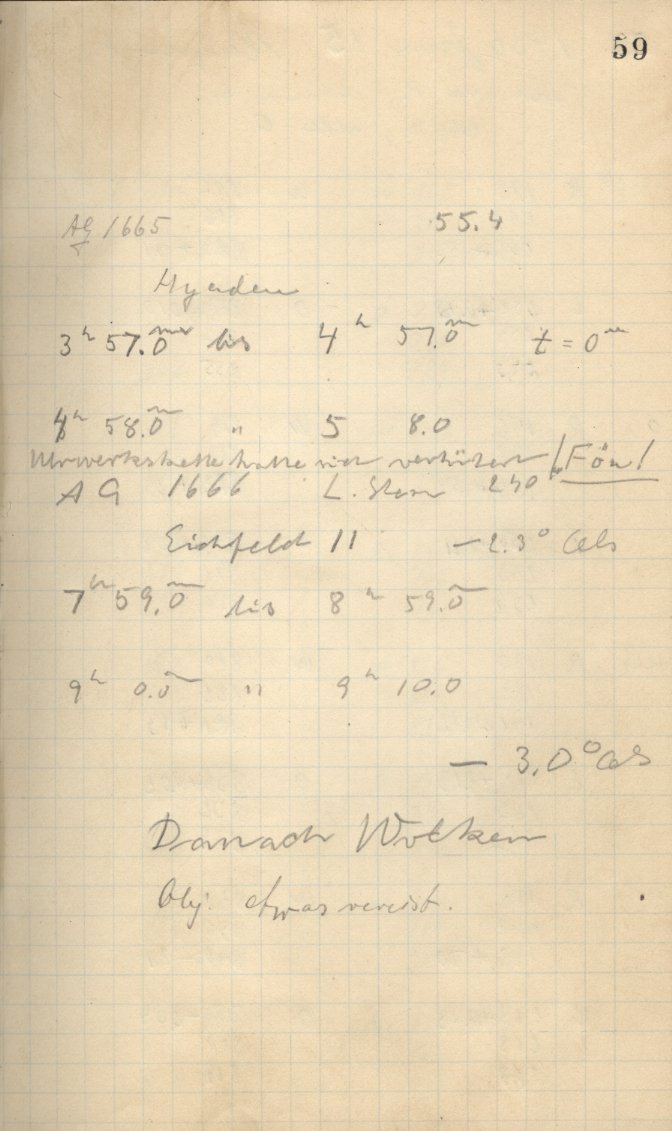 59
AG 1665 55.4
Hyaden
3ʰ 57.0ᵐ bis 4ʰ 57.0ᵐ t = 0ᵐ
4ʰ 58.0ᵐ " 5 8.0
hatte sich (Fön)
AG 1666 L. Stern 240
Eichfeld 11 — 2.3° Cels
7ʰ 59.0ᵐ bis 8ʰ 59.0ᵐ
9ʰ 0.0ᵐ " 9ʰ 10.0
— 3.0° Cels
Danach Wolken
Obj. etwas vereist.